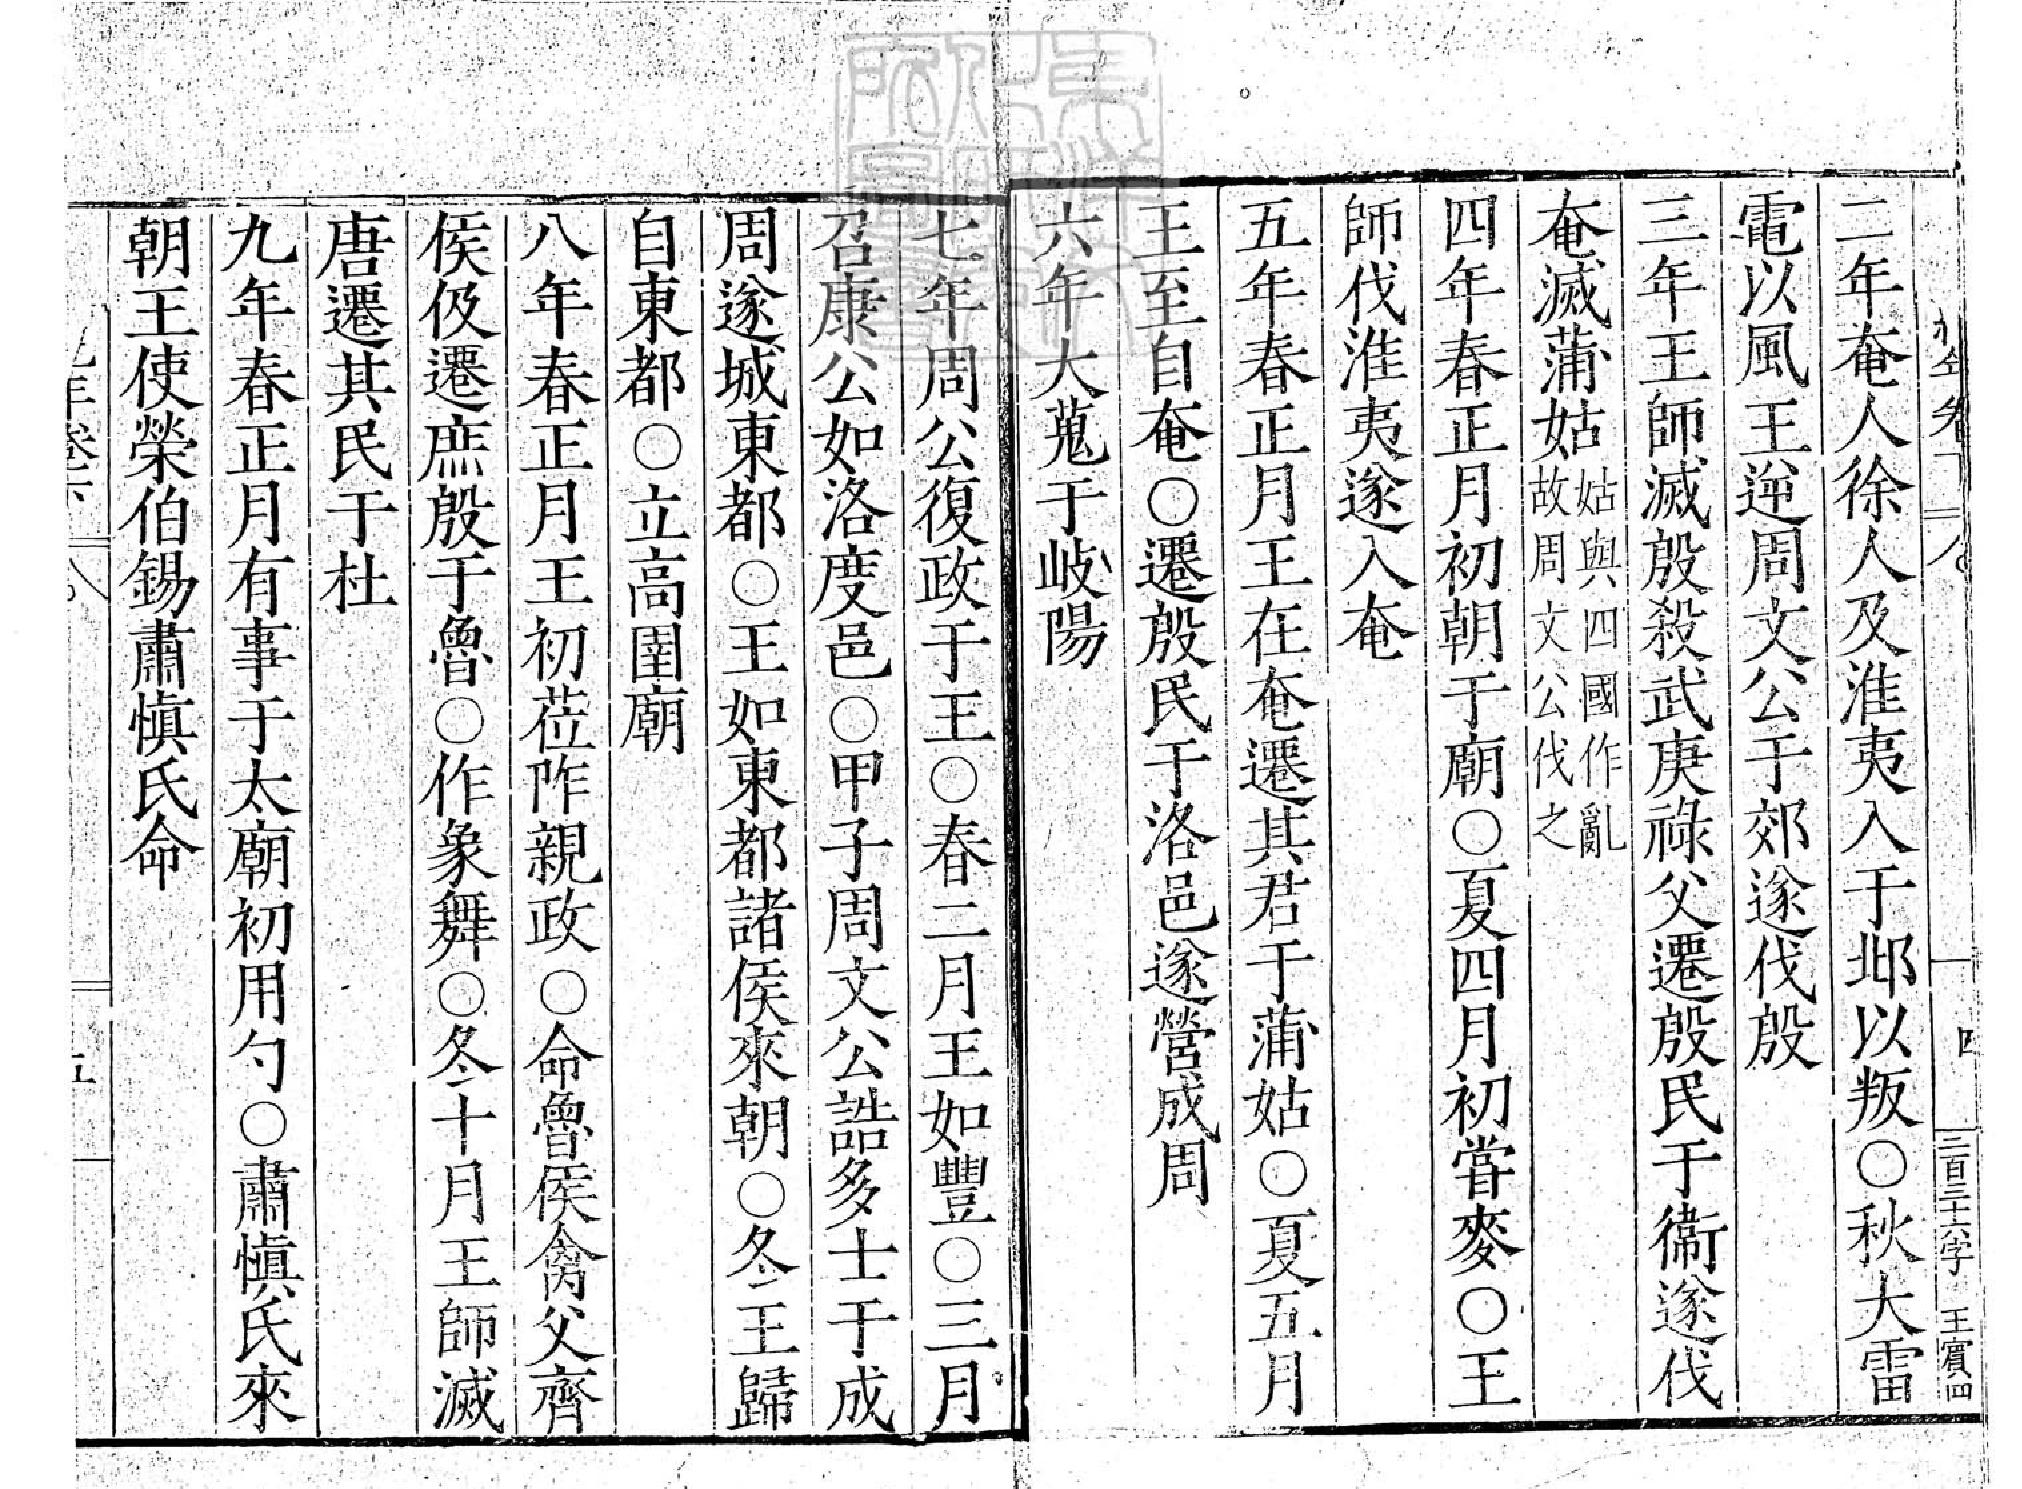 二百三十六字 王賓四
二年奄人徐人及淮夷入于邶以叛〇秋大雷
電以風王逆周文公于郊遂伐殷
三年王師滅殷殺武庚祿父遷殷民于衞遂伐
奄滅蒲姑姑與四國作亂故周文公伐之
四年春正月初朝于廟〇夏四月初嘗麥〇王
師伐淮夷遂入奄
五年春正月王在奄遷其君于蒲姑〇夏五月
王至自奄〇遷殷民于洛邑遂營成周
六年大蒐于岐陽
七年周公復政于王〇春二月王如豐〇三月
召康公如洛度邑〇甲子周文公誥多士于成
周遂城東都〇王如東都諸侯來朝〇冬王歸
自東都〇立高圉廟
八年春正月王初莅阼親政〇命魯侯禽父齊
侯伋遷庶殷于魯〇作象舞〇冬十月王師滅
唐遷其民于杜
九年春正月有事于太廟初用勺〇肅慎氏來
朝王使榮伯錫肅慎氏命